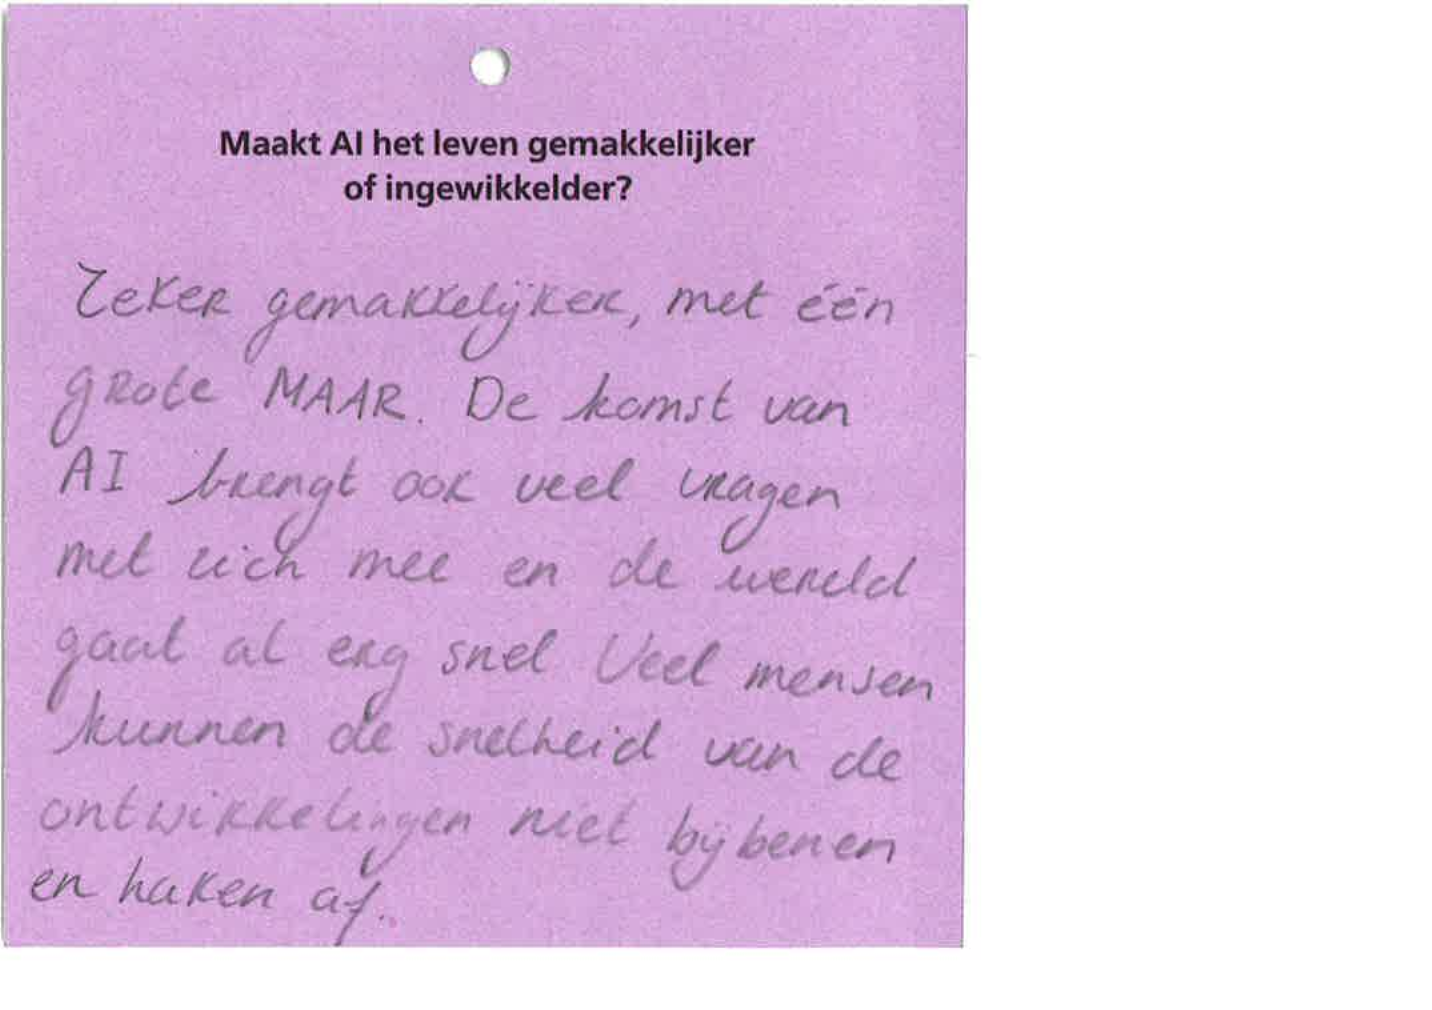 Maakt AI het leven gemakkelijker
of ingewikkelder?
Zeker gemakkelijker, met één
grote MAAR. De komst van
AI brengt ook veel vragen
met zich mee en de wereld
gaat al erg snel Veel mensen
kunnen de snelheid van de
ontwikkelingen niet bijbenen
en haken af.